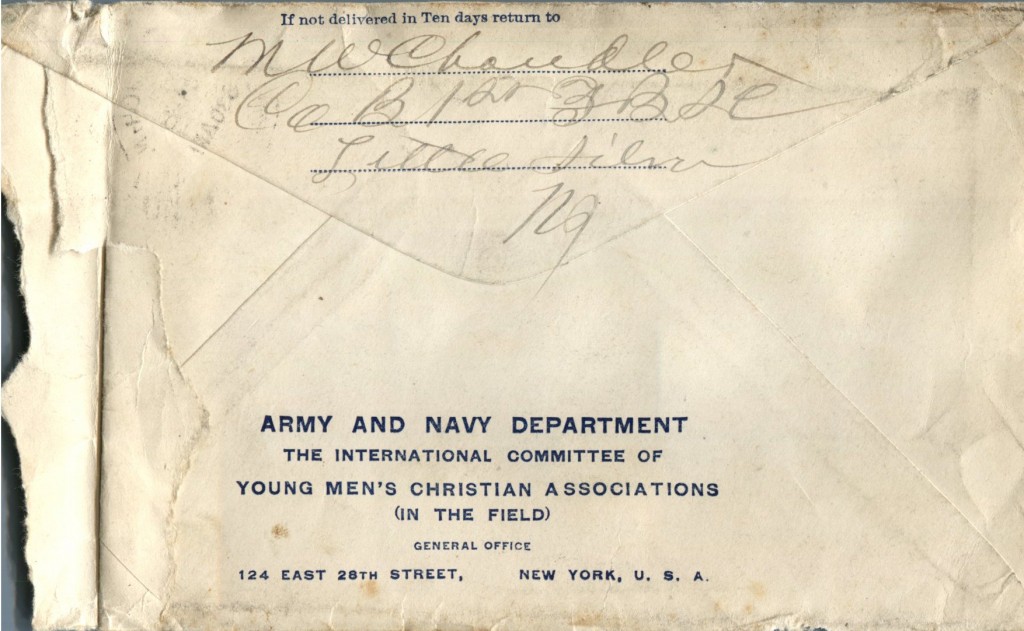 If not delivered in Ten days return to
M W Chandler
Co B 1st F B SC
Little Silver
NJ
ARMY AND NAVY DEPARTMENT
THE INTERNATIONAL COMMITTEE OF
YOUNG MEN'S CHRISTIAN ASSOCIATIONS
(IN THE FIELD)
GENERAL OFFICE
124 EAST 28TH STREET, NEW YORK, U. S. A.